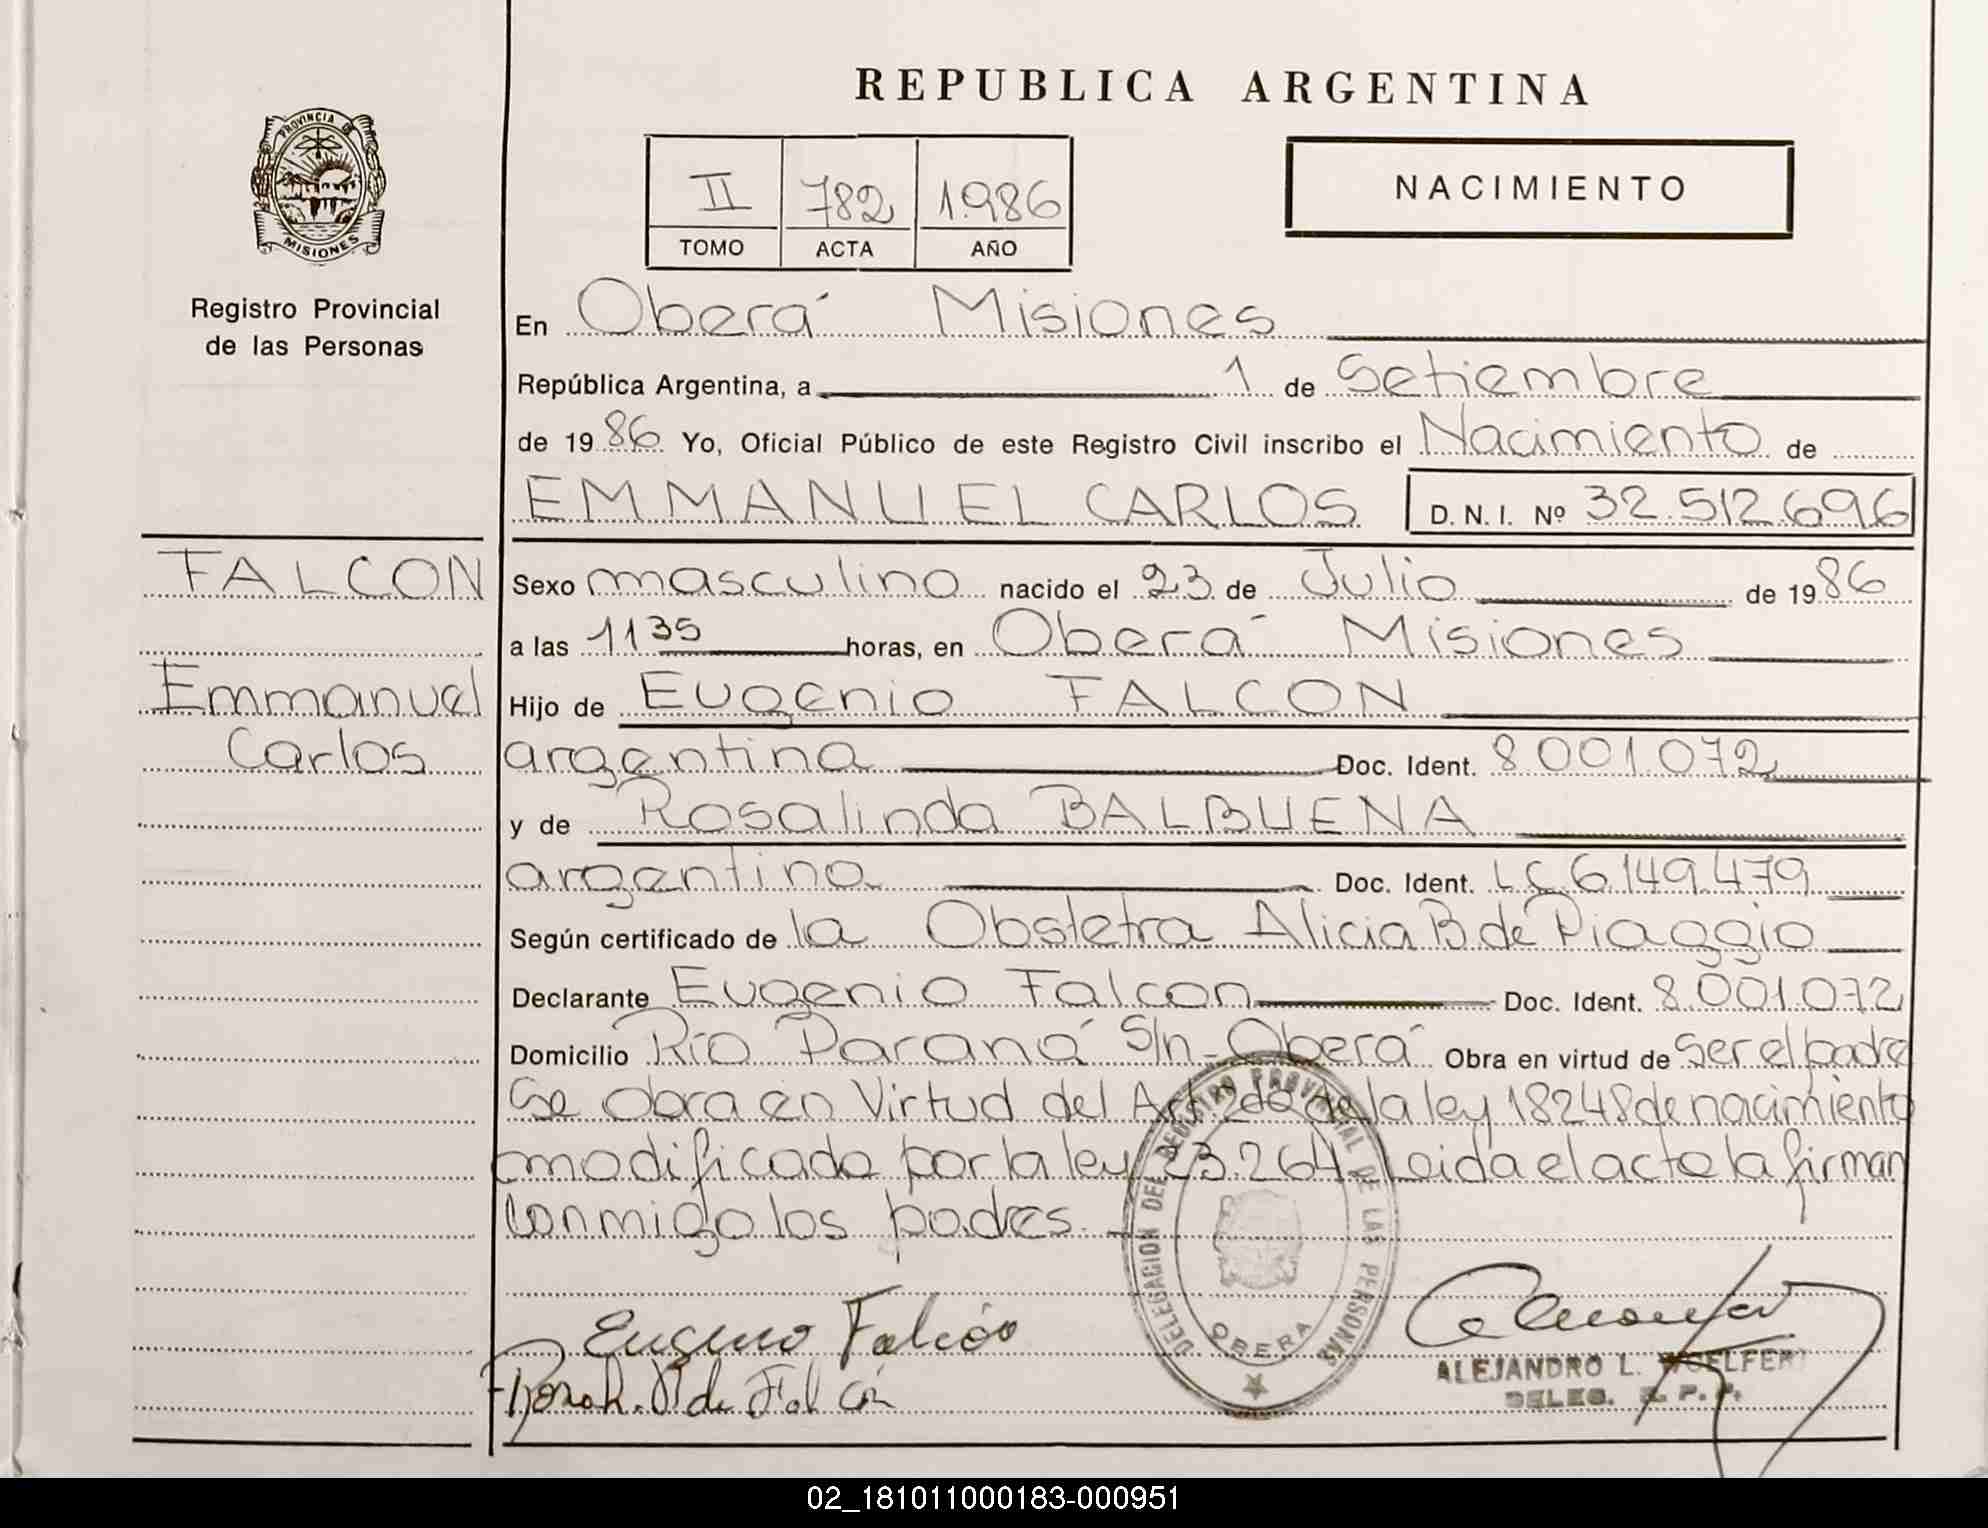 REPUBLICA ARGENTINA
PROVINCIA DE
MISIONES
Registro Provincial
de las Personas
II 782 1.986
TOMO ACTA AÑO
NACIMIENTO
En Oberá Misiones
República Argentina, a 1 de Setiembre
de 1986 Yo, Oficial Público de este Registro Civil inscribo el Nacimiento de
EMMANUEL CARLOS D. N. I. Nº 32.512.696
FALCON
Emmanuel
Carlos
Sexo masculino nacido el 23 de Julio de 1986
a las 11 35 horas, en Oberá Misiones
Hijo de Eugenio FALCON
argentina Doc. Ident. 8.001.072
y de Rosalinda BALBUENA
argentina Doc. Ident. LC 6.149.479
Según certificado de la Obstetra Alicia B. de Piaggio
Declarante Eugenio Falcon Doc. Ident. 8.001.072
Domicilio Río Paraná S/n - Oberá Obra en virtud de Ser el padre
Se obra en Virtud del Art. de la ley 18248 de nacimiento
modificada por la ley 23.264 Leida el acta la firman
conmigo los padres.
DELEGACION DEL REGISTRO PROVINCIAL DE LAS PERSONAS
OBERA
Eugenio Falcón
de Falcón
ALEJANDRO L.
DELEG. R. P. P.
02_181011000183-000951